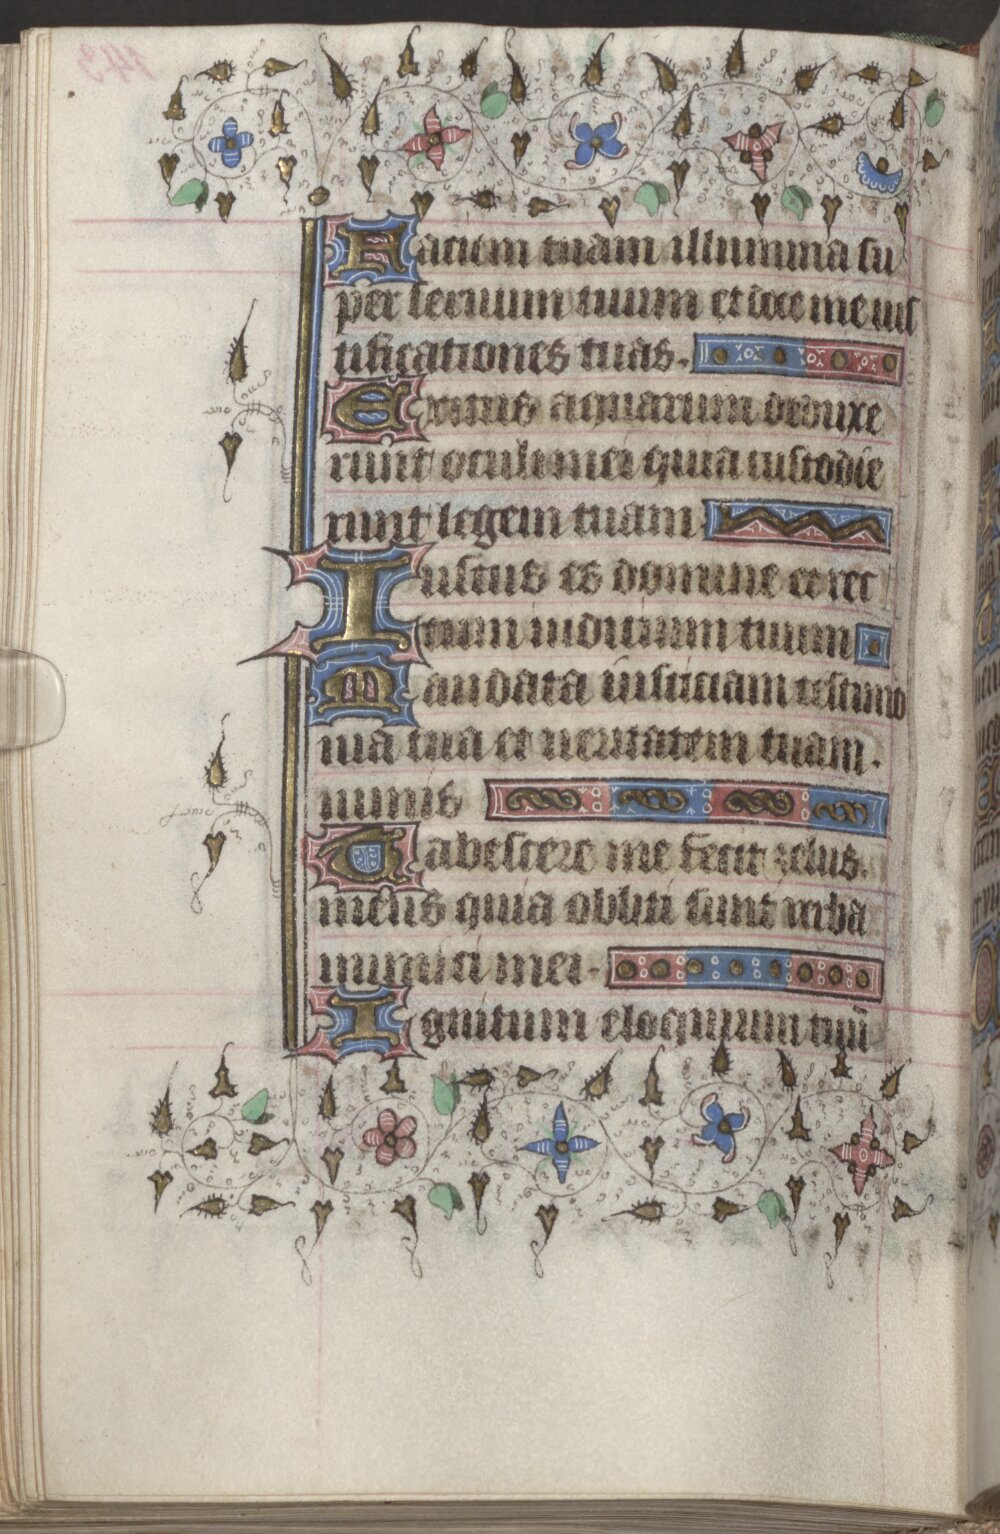 Faciem tuam illumina su
per servum tuum et doce me ius
tificationes tuas.
Exitus aquarum deduxe
runt oculi mei quia custodie
runt legem tuam
Iustus es domine et rec
tum iudicium tuum
Mandata iusticiam testimo
nia tua et veritatem tuam.
nimis
Tabescere me fecit zelus.
meus quia obliti sunt verba
inimici mei.
Ignitum eloquium tuū